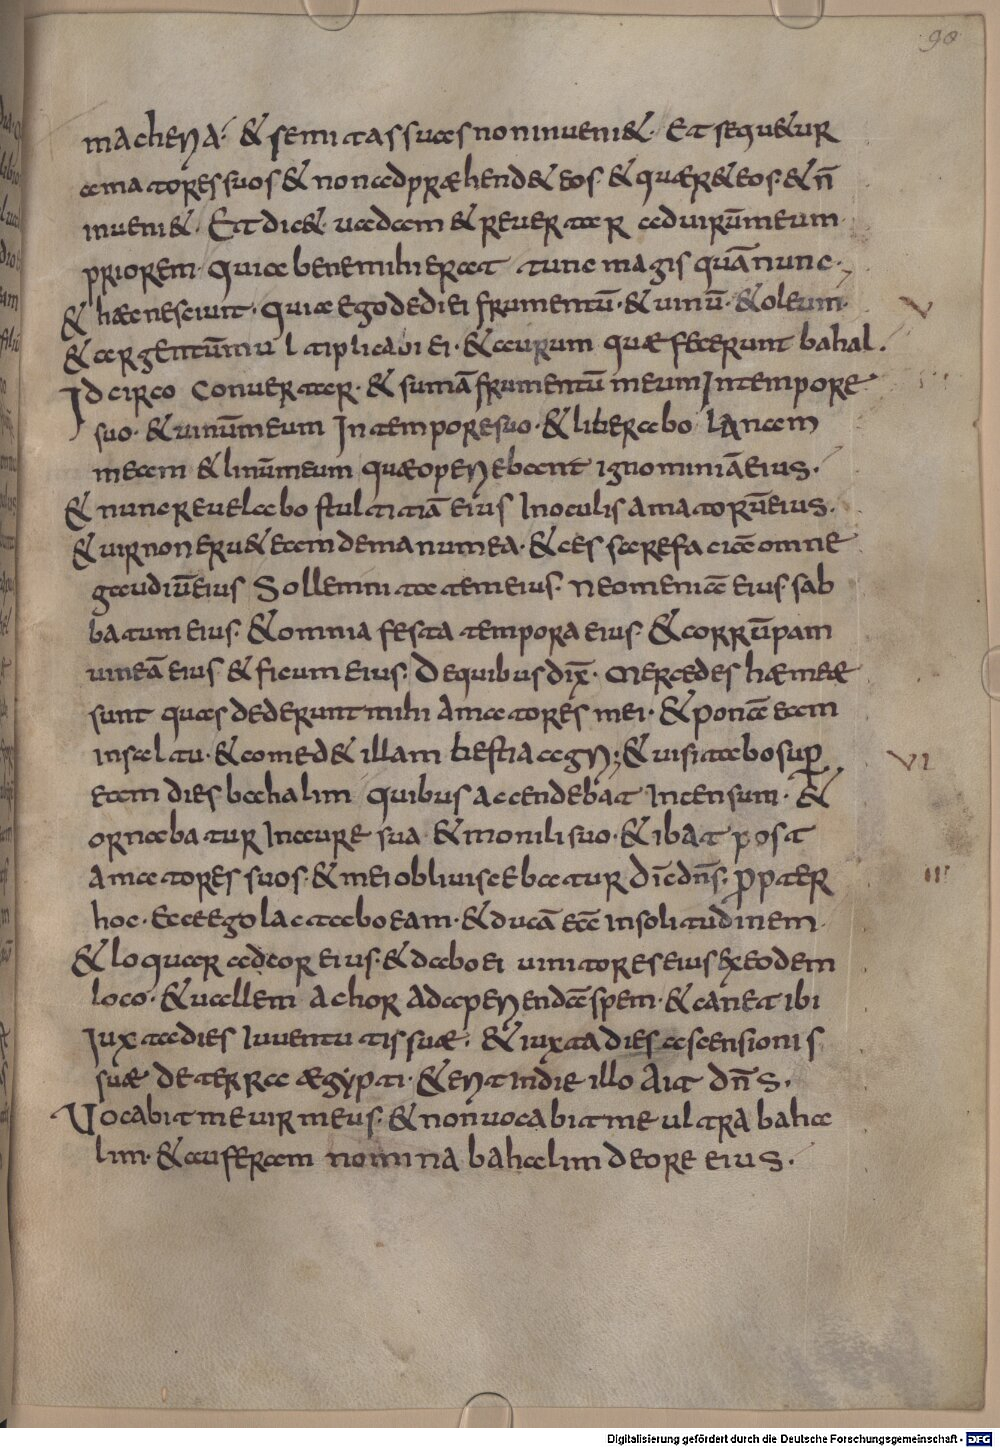 90
maceria· & semitas suas non inueni&· Et sequ&ur
amatores suos & non adpræhend& eos· & quær& eos· & n̄
inueni&· Et dic&· uadam & reuertar ad uirūmeum
priorem· quia bene mihi erat tunc magis quā nunc·
& hæc nesciuit· quia ego dedi ei frumentū· & uinū· & oleum·
& argentūmultiplicaui ei· & aurum quæ fecerunt bahal·
Idcirco conuertar· & sumā frumentū meum In tempore
suo· & uinūmeum In tempore suo· & liberabo lanam
meam & linūmeum quæ operiebant ignominiā eius·
& nunc reuelabo stultitiā eius In oculis amatorū eius·
& uir non eru& eam de manu mea· & cessare faciā omne
gaudiū eius Sollemnitatem eius· neomeniā eius sab
batum eius· & omnia festa tempora eius· & corrūpam
uineā eius & ficum eius· De quibus dix̄· Mercedes hæ meæ
sunt quas dederunt mihi amatores mei· & ponā eam
in saltu· & comed& illam bestia agri; & uisitabo sup̄
eam dies bahalim quibus accendebat Incensum· &
ornabatur In aure sua & monili suo· & ibat post
amatores suos· & mei obliuiscebatur dic̄ dn̄s· propter
hoc· Ecce ego lactabo eam· & ducā eā In solitudinem·
& loquar ad cor eius· & dabo ei uinitores eius ex eodem
loco· & uallem achor ad aperiendā spem· & can&ibi
Iuxta dies Iuuentutis suæ· & iuxta dies ascensionis
suæ de terra ægypti· & erit In die illo ait dn̄s·
Vocabit me uir meus· & non uocabit me ultra baha
lim· & auferam nomina bahalim de ore eius·
V
VI
III
Digitalisierung gefördert durch die Deutsche Forschungsgemeinschaft - DFG